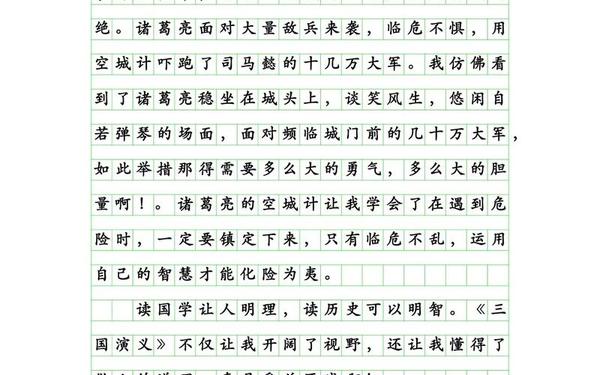 绝。诸葛亮面对大量敌兵来袭，临危不惧，用
空城计吓跑了司马懿的十几万大军。我仿佛看
到了诸葛亮稳坐在城头上，谈笑风生，悠闲自
若弹琴的场面，面对频临城门前的几十万大军，
如此举措那得需要多么大的勇气，多么大的胆
量啊！。诸葛亮的空城计让我学会了在遇到危
险时，一定要镇定下来，只有临危不乱，运用
自己的智慧才能化险为夷。
读国学让人明理，读历史可以明智。《三
国演义》不仅让我开阔了视野，还让我懂得了